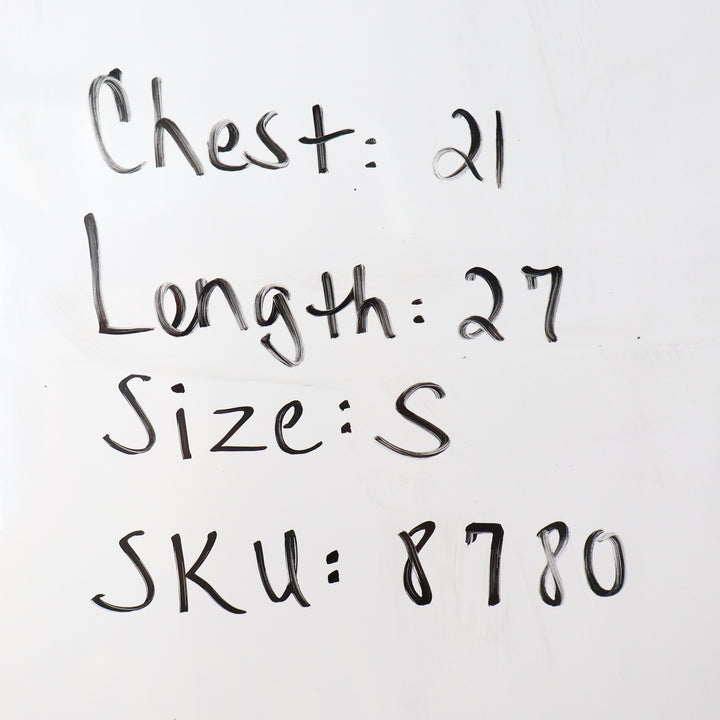 Chest: 21
Length: 27
Size: S
SKU: 8780